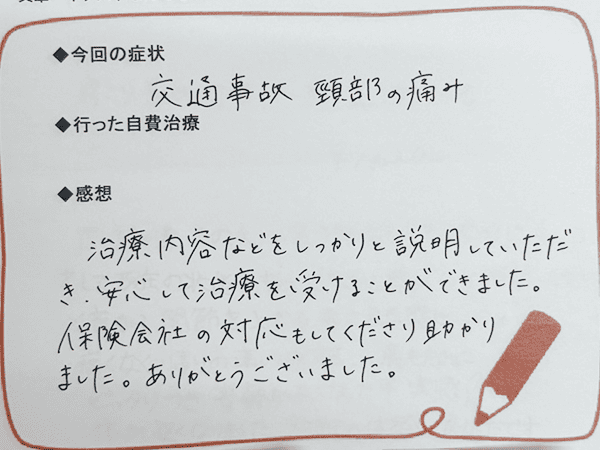 ◆今回の症状
交通事故 頸部の痛み
◆行った自費治療
◆感想
治療内容などをしっかりと説明していただ
き、安心して治療を受けることができました。
保険会社の対応もしてくださり助かり
ました。ありがとうございました。